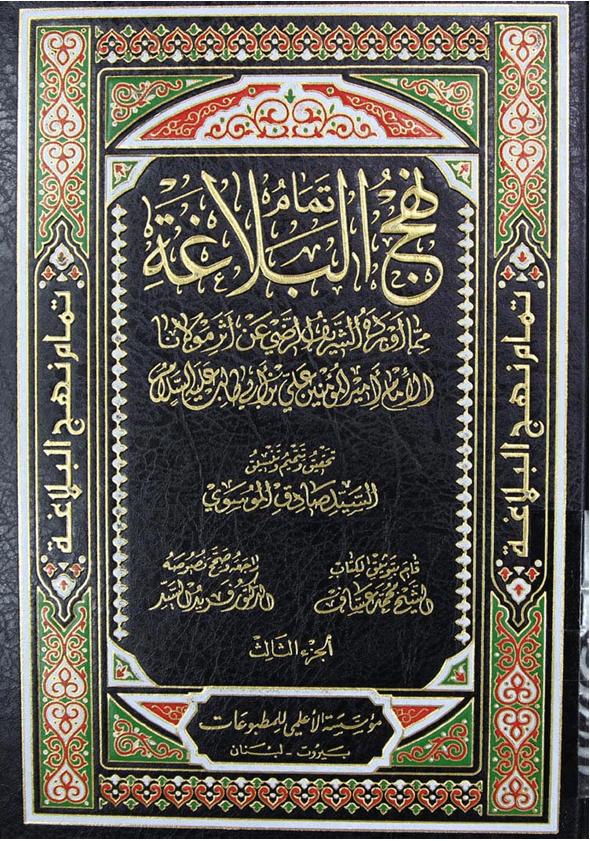 تمام نهج البلاغة
تمام
نهج البلاغة
مما أورده الشريف الرضي عن أثر مولانا
الإمام أمير المؤمنين علي بن أبي طالب عليه السلام
تحقيق وتتميم وتنسيق
السيد صادق الموسوي
قام بتوثيق الكتاب
الشيخ محمد عساف
راجعه وصحح نصوصه
الدكتور فريد السيد
الجزء الثالث
مؤسسة الأعلمي للمطبوعات
بيروت - لبنان
تمام نهج البلاغة